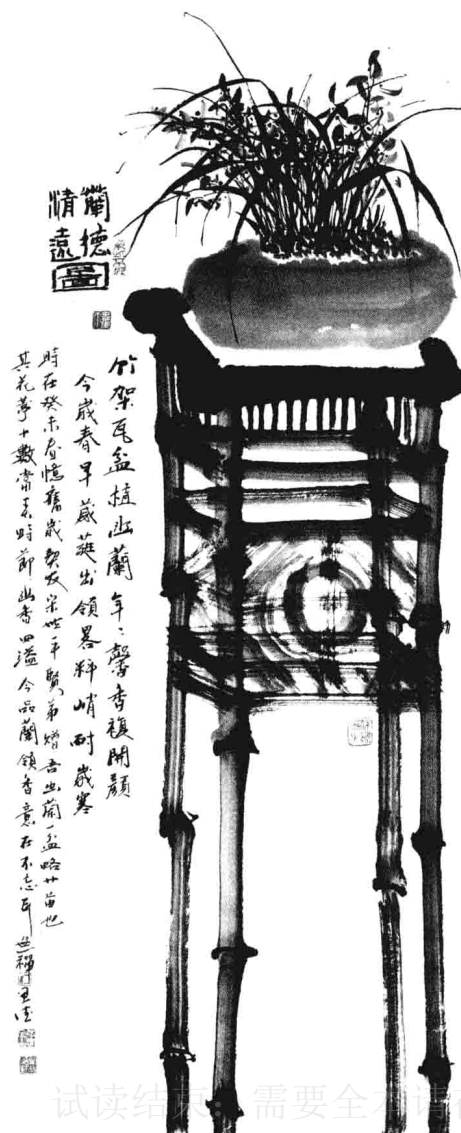 蘭德
清遠
竹架瓦盆植幽蘭年〻馨香復開顏
今歲春早葳蕤出領畧料峭耐歲寒
時在癸未春憶舊歲契友宋世平賢弟贈吾幽蘭一盆略廿苗也
其花萼十數當春時節幽香四溢今品蘭領香意在不忘耳
试读结束：需要全本请在